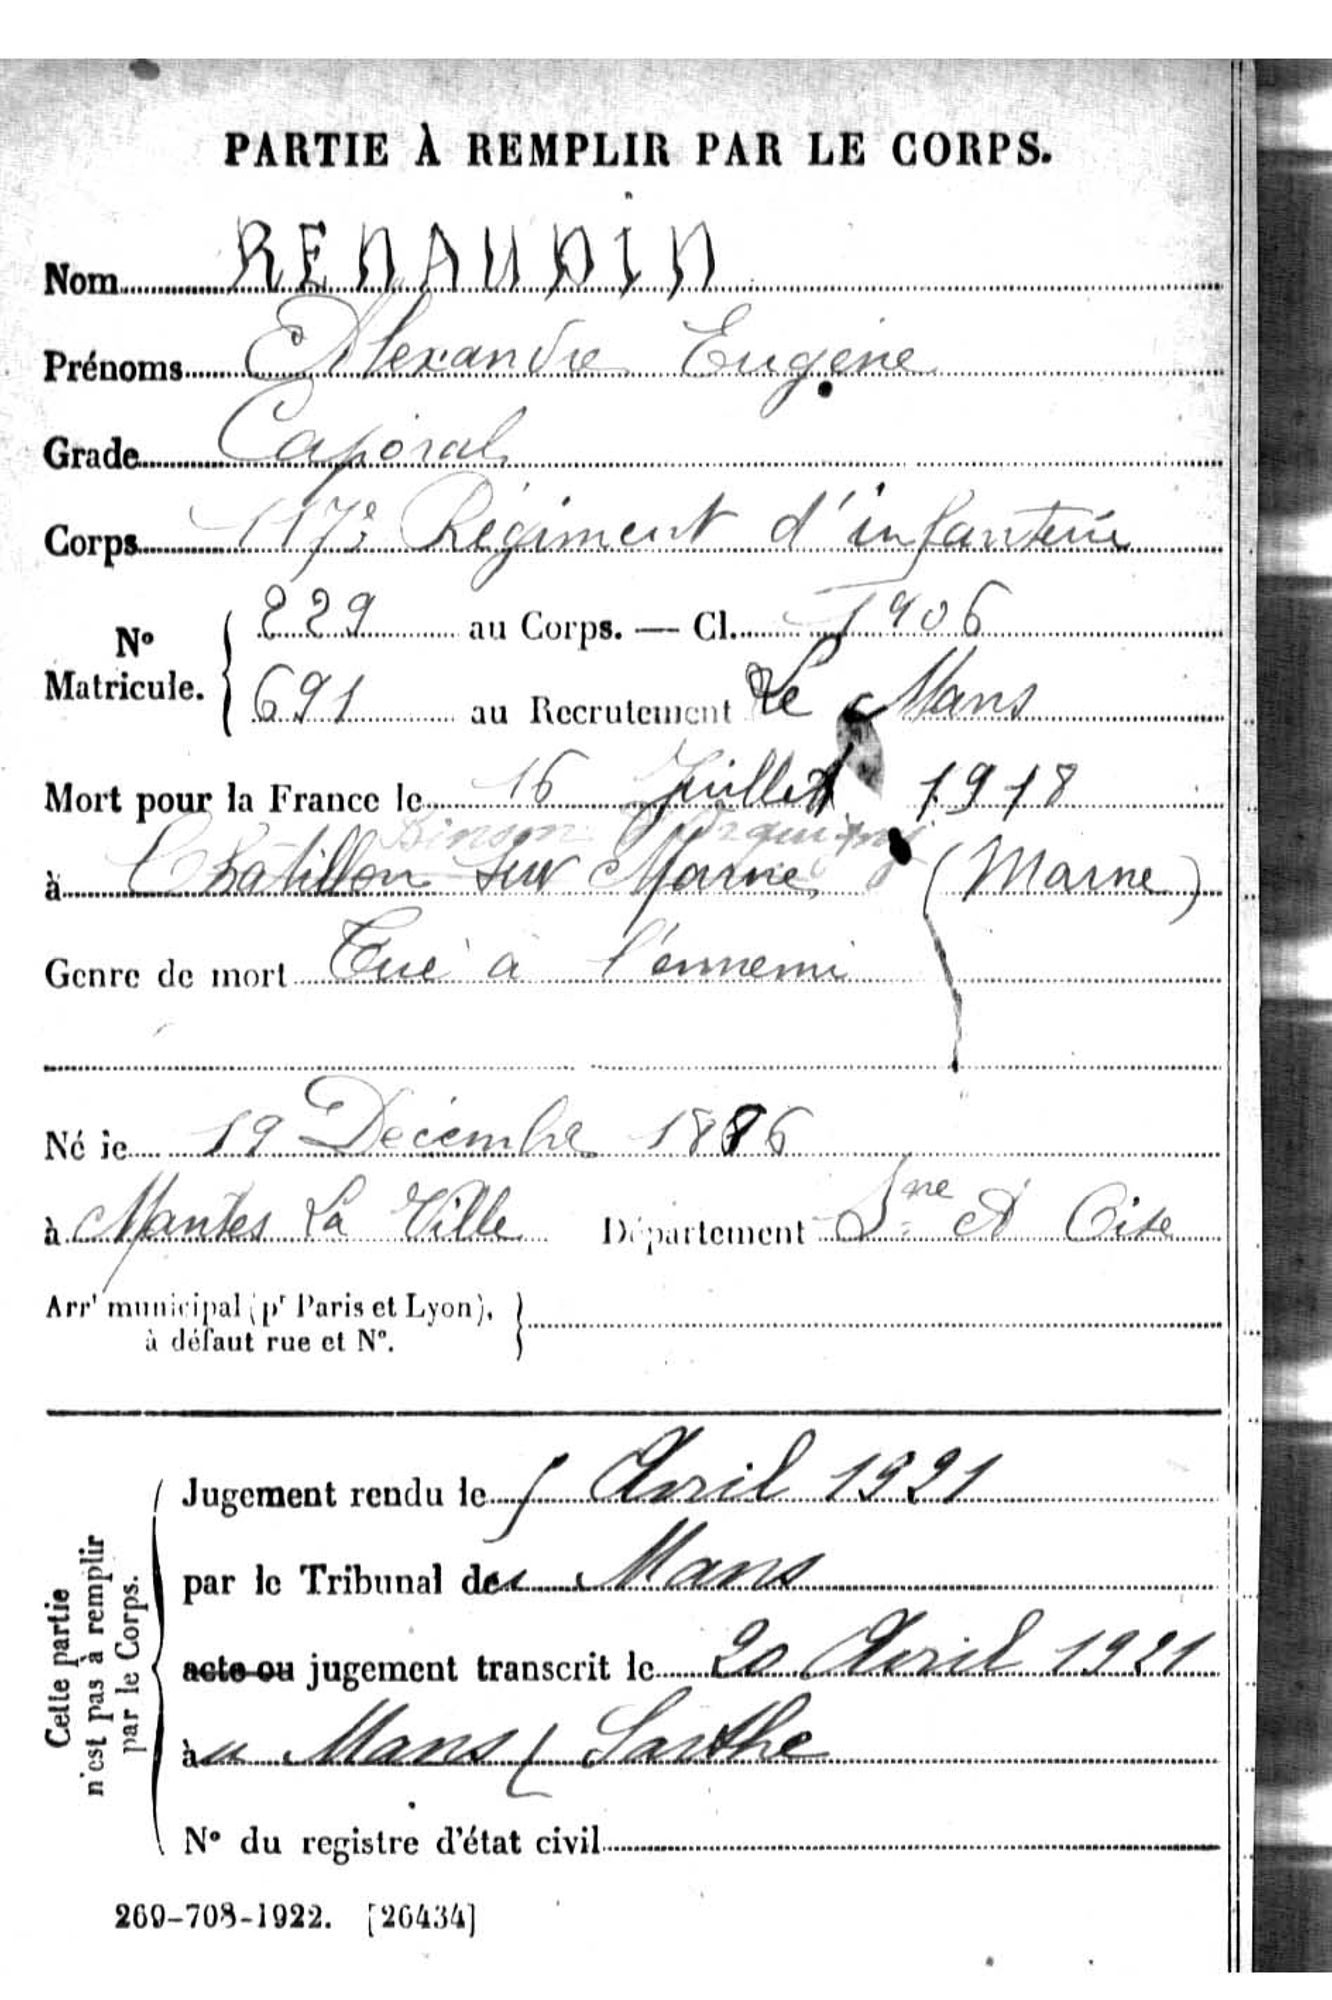 PARTIE À REMPLIR PAR LE CORPS.
Nom RENAUDIN
Prénoms Alexandre Eugène
Grade Caporal
Corps 117e Régiment d'infanterie
No Matricule. { 229 au Corps. — Cl. 1906
691 au Recrutement Le Mans
Mort pour la France le 16 Juillet 1918
Binson
à Châtillon sur Marne (Marne)
Genre de mort Tué à l'ennemi
Né le 19 Décembre 1886
à Mantes La Ville Département Sne et Oise
Arrt municipal (pr Paris et Lyon), à défaut rue et No. }
Cette partie n'est pas à remplir par le Corps.
Jugement rendu le 5 Avril 1921
par le Tribunal du Mans
acte ou jugement transcrit le 20 Avril 1921
au Mans (Sarthe
No du registre d'état civil
269-708-1922. [26434]